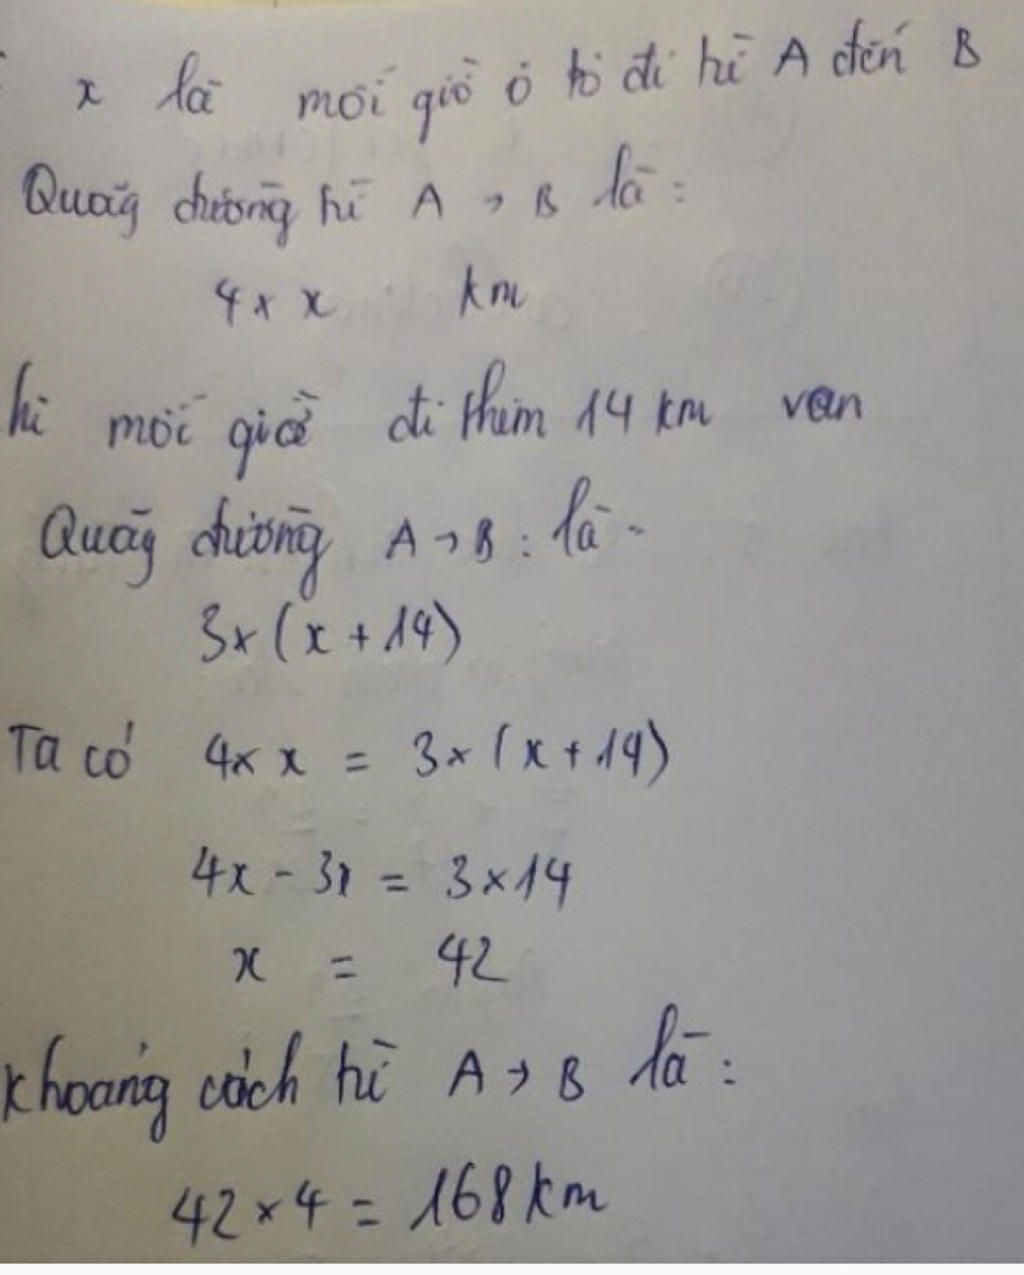 x là mỗi giờ ô tô đi từ A đến B
Quãng đường từ A → B là :
4 × x km
mỗi giờ đi thêm 14 km
Quãng đường A → B : là -
3×(x + 14)
Ta có 4× x = 3×(x + 14)
4x - 3x = 3×14
x = 42
Khoảng cách từ A → B là :
42 × 4 = 168 km